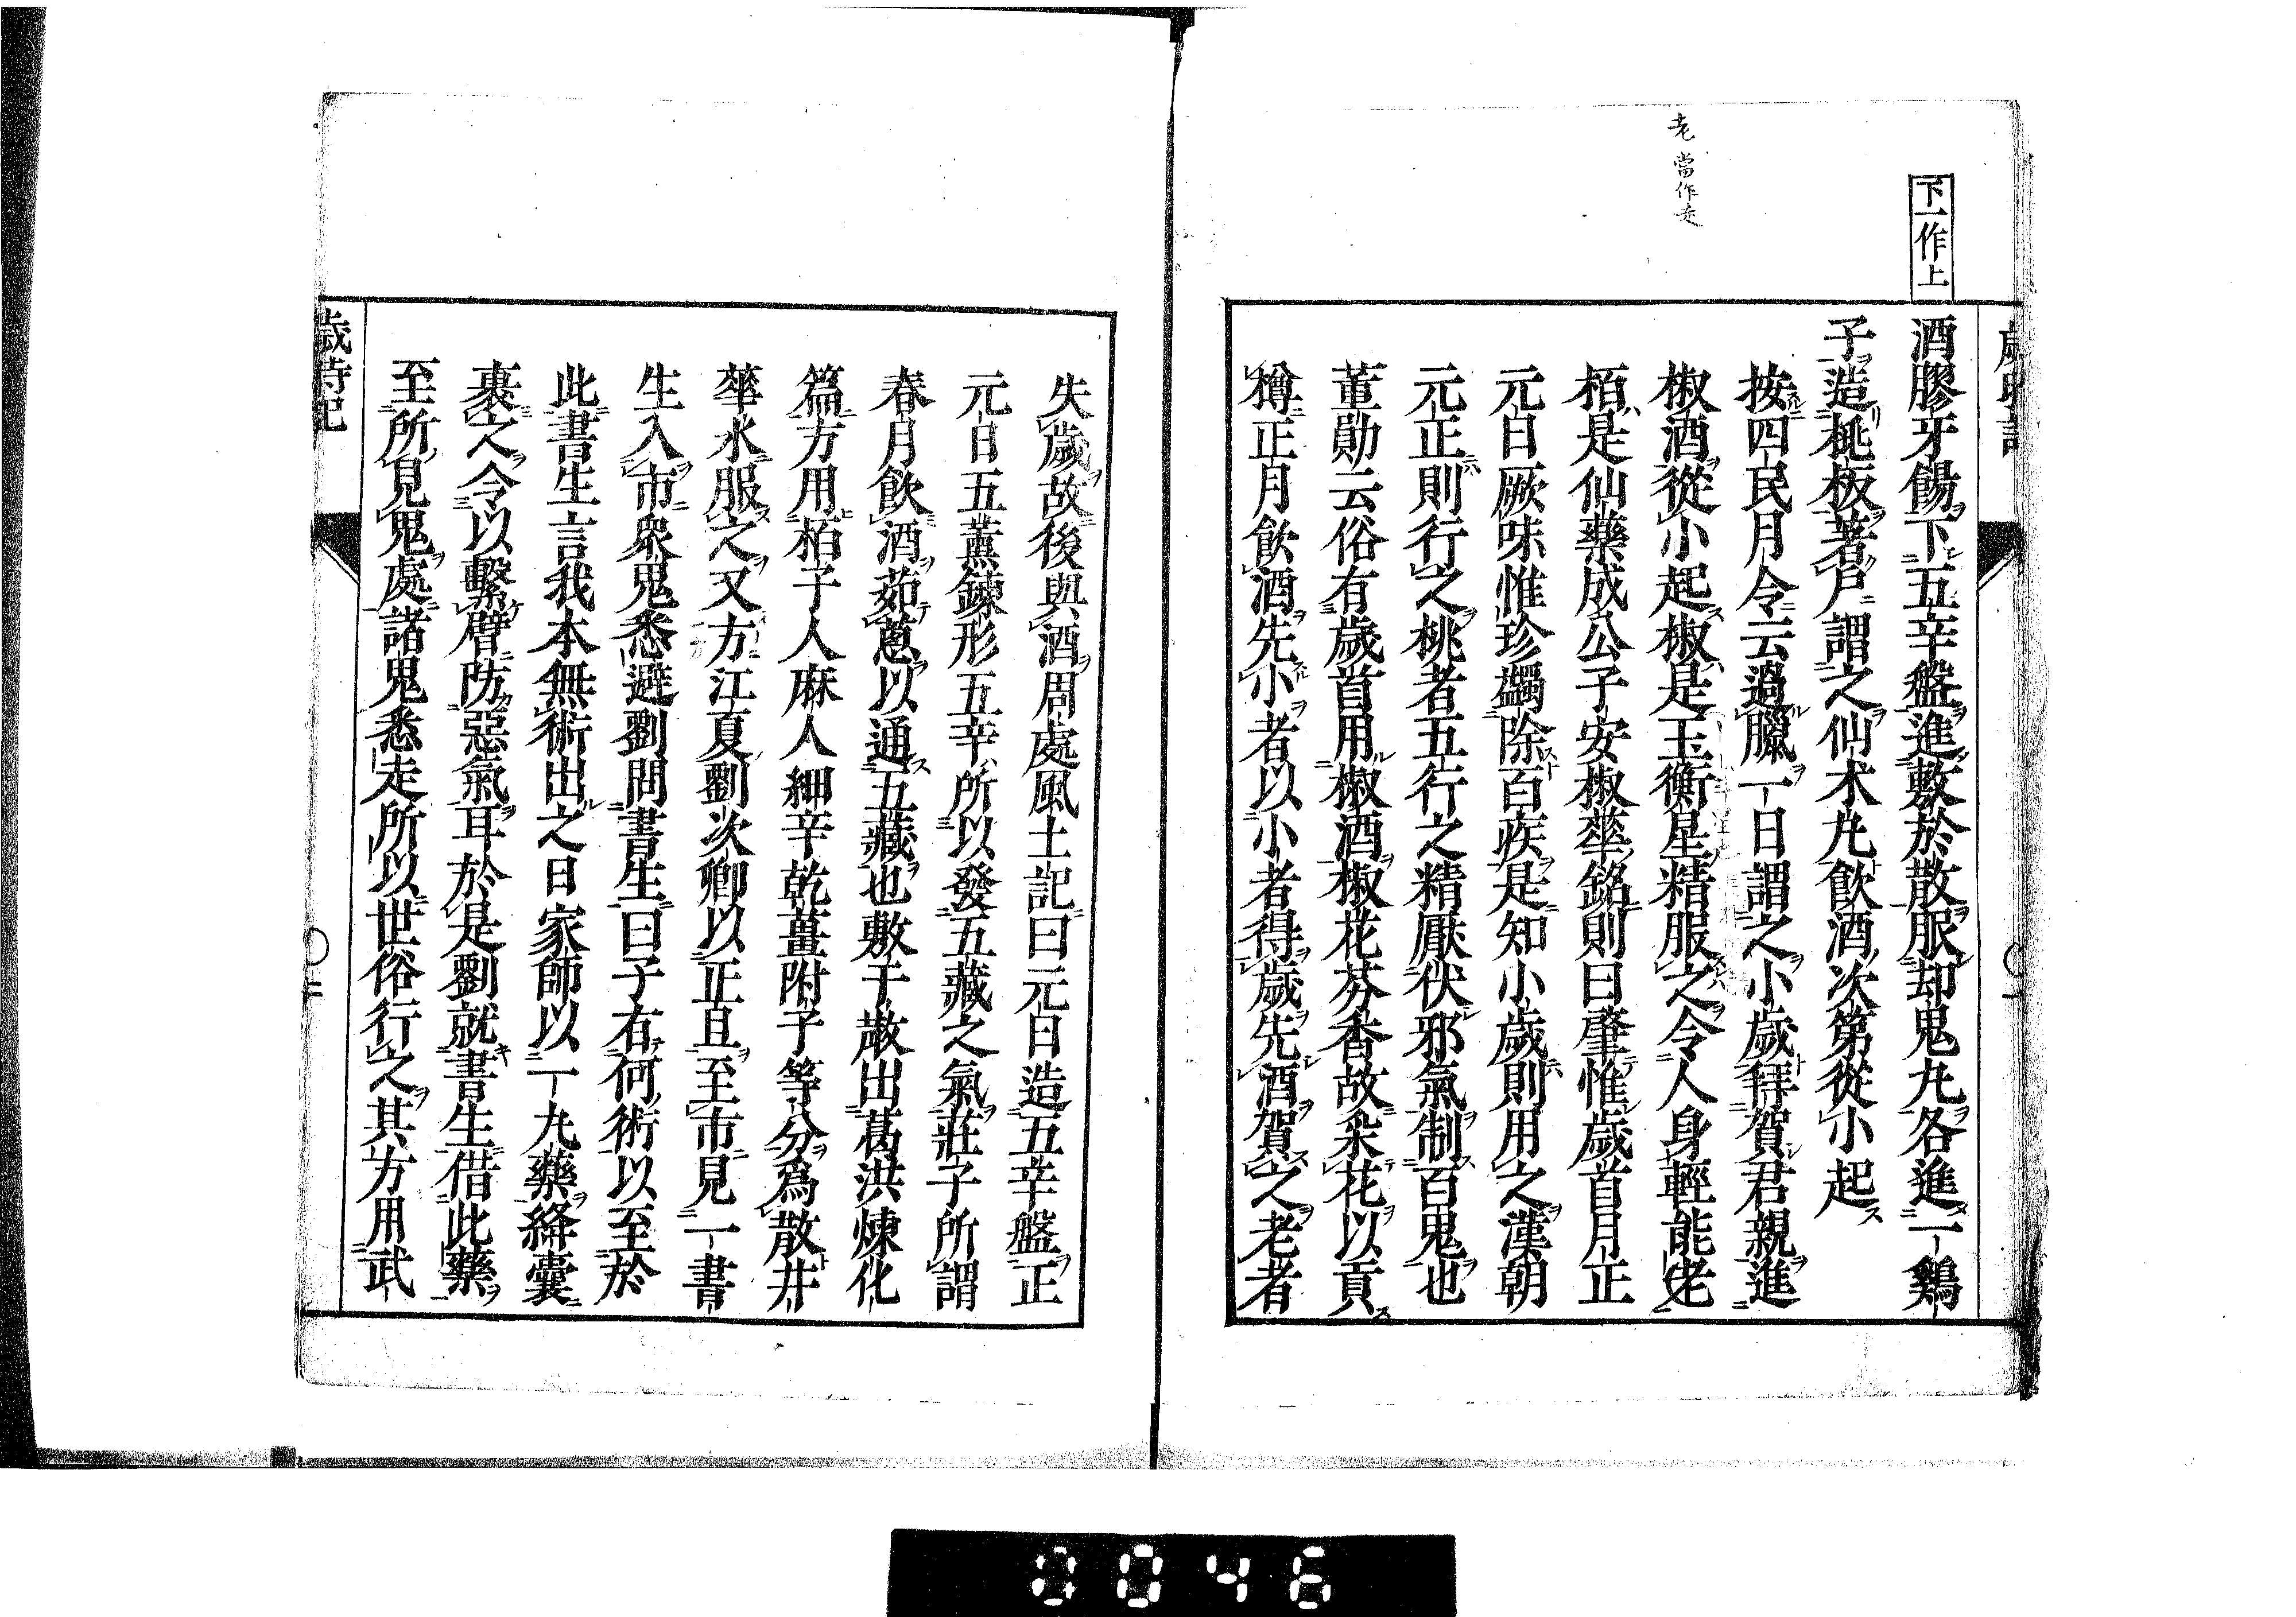 老當作走
下一作上
酒膠牙餳下五辛盤進敷於散服却鬼丸各進一鷄
子造桃板著戸謂之仙木丸飲酒次第從小起
按四民月令云過臘一日謂之小歲拜賀君親進
椒酒從小起椒是玉衡星精服之令人身輕能老
栢是仙藥成公子安椒華銘則曰肇惟歲首月正
元日厥味惟珍蠲除百疾是知小歲則用之漢朝
元正則行之桃者五行之精厭伏邪氣制百鬼也
董勛云俗有歲首用椒酒椒花芬香故采花以貢
樽正月飲酒先小者以小者得歲先酒賀之老者
失歲故後與酒周處風土記曰元日造五辛盤正
元日五薫錬形五辛所以發五藏之氣莊子所謂
春月飲酒茹蔥以通五藏也敷于散出葛洪煉化
篇方用栢子人麻人細辛乾薑附子等分爲散井
華水服之又方江夏劉次卿以正旦至市見一書
生入市衆鬼悉避劉問書生曰子有何術以至於
此書生言我本無術出之日家師以一丸藥絳囊
裹之令以繫臂防惡氣耳於是劉就書生借此藥
至所見鬼處諸鬼悉走所以世俗行之其方用武
歲時記
二
0046